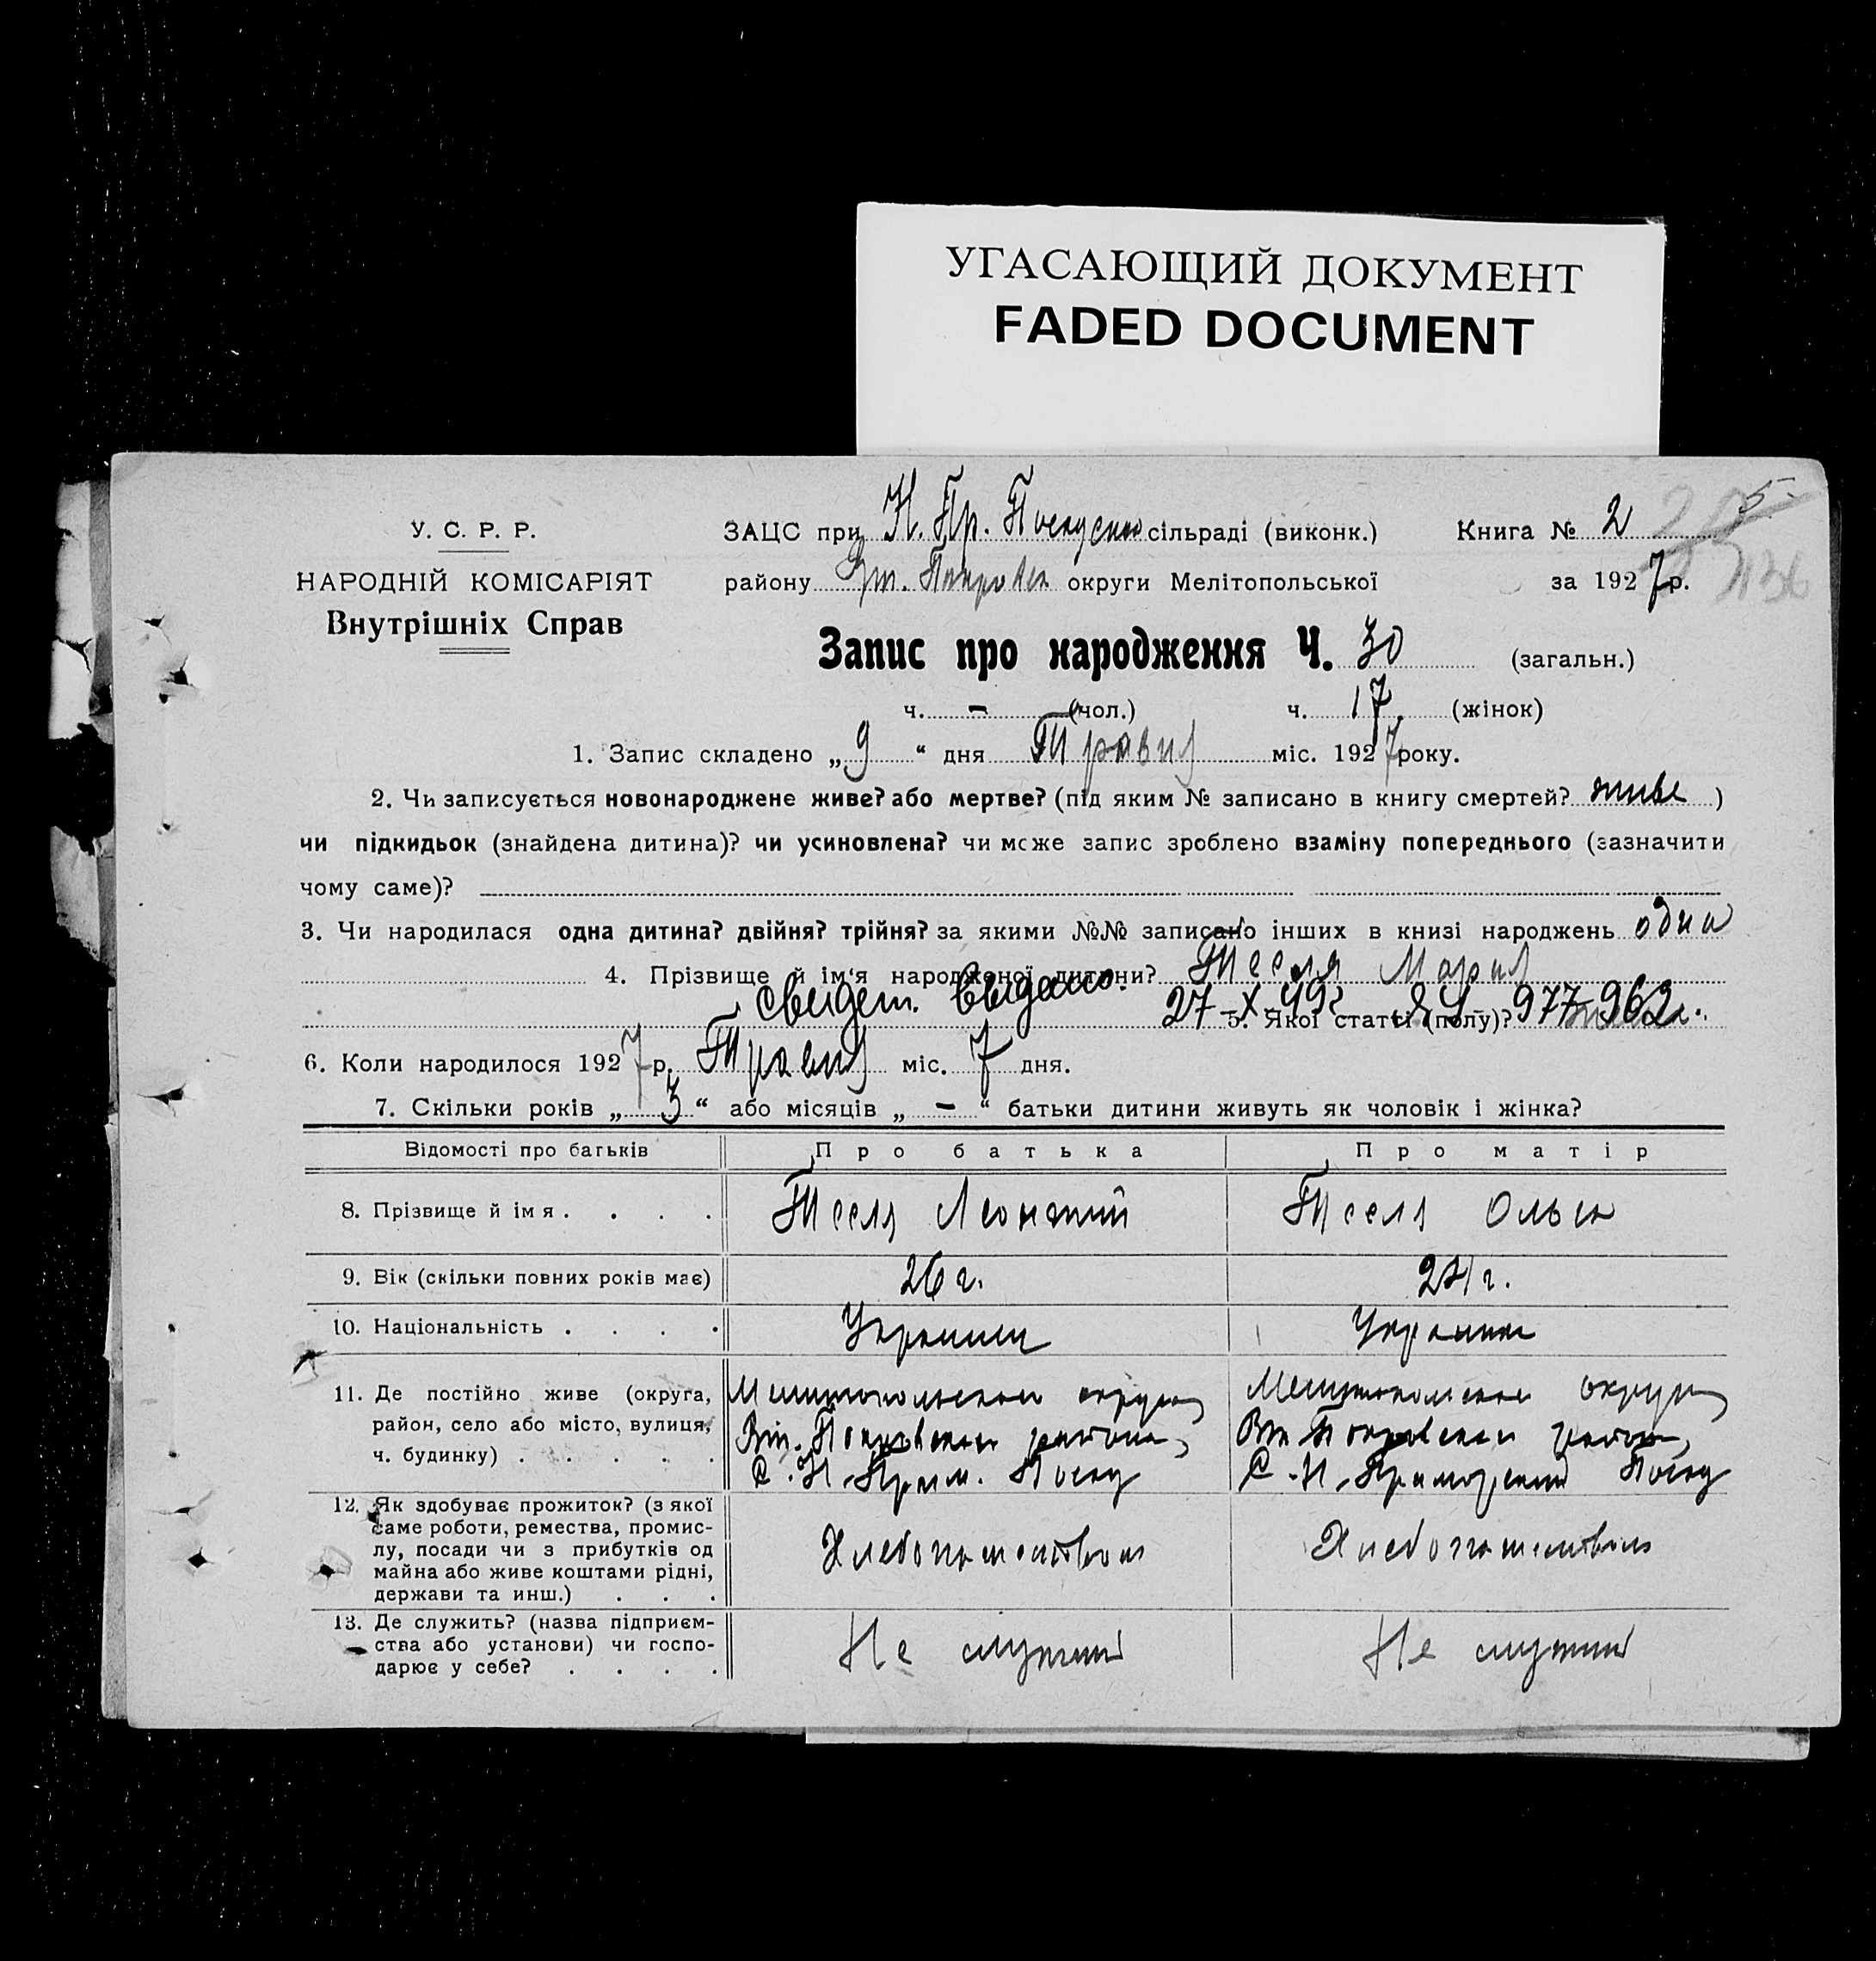 УГАСАЮЩИЙ ДОКУМЕНТ
FADED DOCUMENT
У. С. Р. Р.
НАРОДНІЙ КОМІСАРІЯТ
Внутрішніх Справ
ЗАЦС при Н. Пр. сільраді (виконк.) Книга № 2
району Вт. Покровск округи Мелітопольської за 1927р.
Запис про народження Ч. 30 (загальн.)
ч. - (чол.) ч. 17 (жінок)
1. Запис складено „9“ дня Травня міс. 1927 року.
2. Чи записується новонароджене живе? або мертве? (під яким № записано в книгу смертей? живе )
чи підкидьок (знайдена дитина)? чи усиновлена? чи може запис зроблено взаміну попереднього (зазначити
чому саме)?
3. Чи народилася одна дитина? двійня? трійня? за якими №№ записано інших в книзі народжень одна
4. Прізвище й ім'я народженої дитини? Тесля Мария
свидет. выдано. 27-X-49
5. Якої статті (полу)? 977962
6. Коли народилося 1927 р. Травня міс. 7 дня.
7. Скільки років „3“ або місяців „-“ батьки дитини живуть як чоловік і жінка?
Відомості про батьків Про батька Про матір
8. Прізвище й імя . . . . Тесля Леонтий Тесля Ольга
9. Вік (скільки повних років має) 26 г. г.
10. Національність . . . . Украинец Украинка
11. Де постійно живе (округа, Мелитопольской округи Мелитопольской округи
район, село або місто, вулиця, Вт. Покровского района, Вт. Покровского района,
ч. будинку) . . . . . С. Н. Прим. Посад С. Н. Приморский Посад
12. Як здобуває прожиток? (з якої
саме роботи, ремества, промис-
лу, посади чи з прибутків од Хлебопашеством Хлебопашеством
майна або живе коштами рідні,
держави та инш.) . . .
13. Де служить? (назва підприєм-
ства або установи) чи госпо- Не служит Не служит
дарює у себе? . . . .